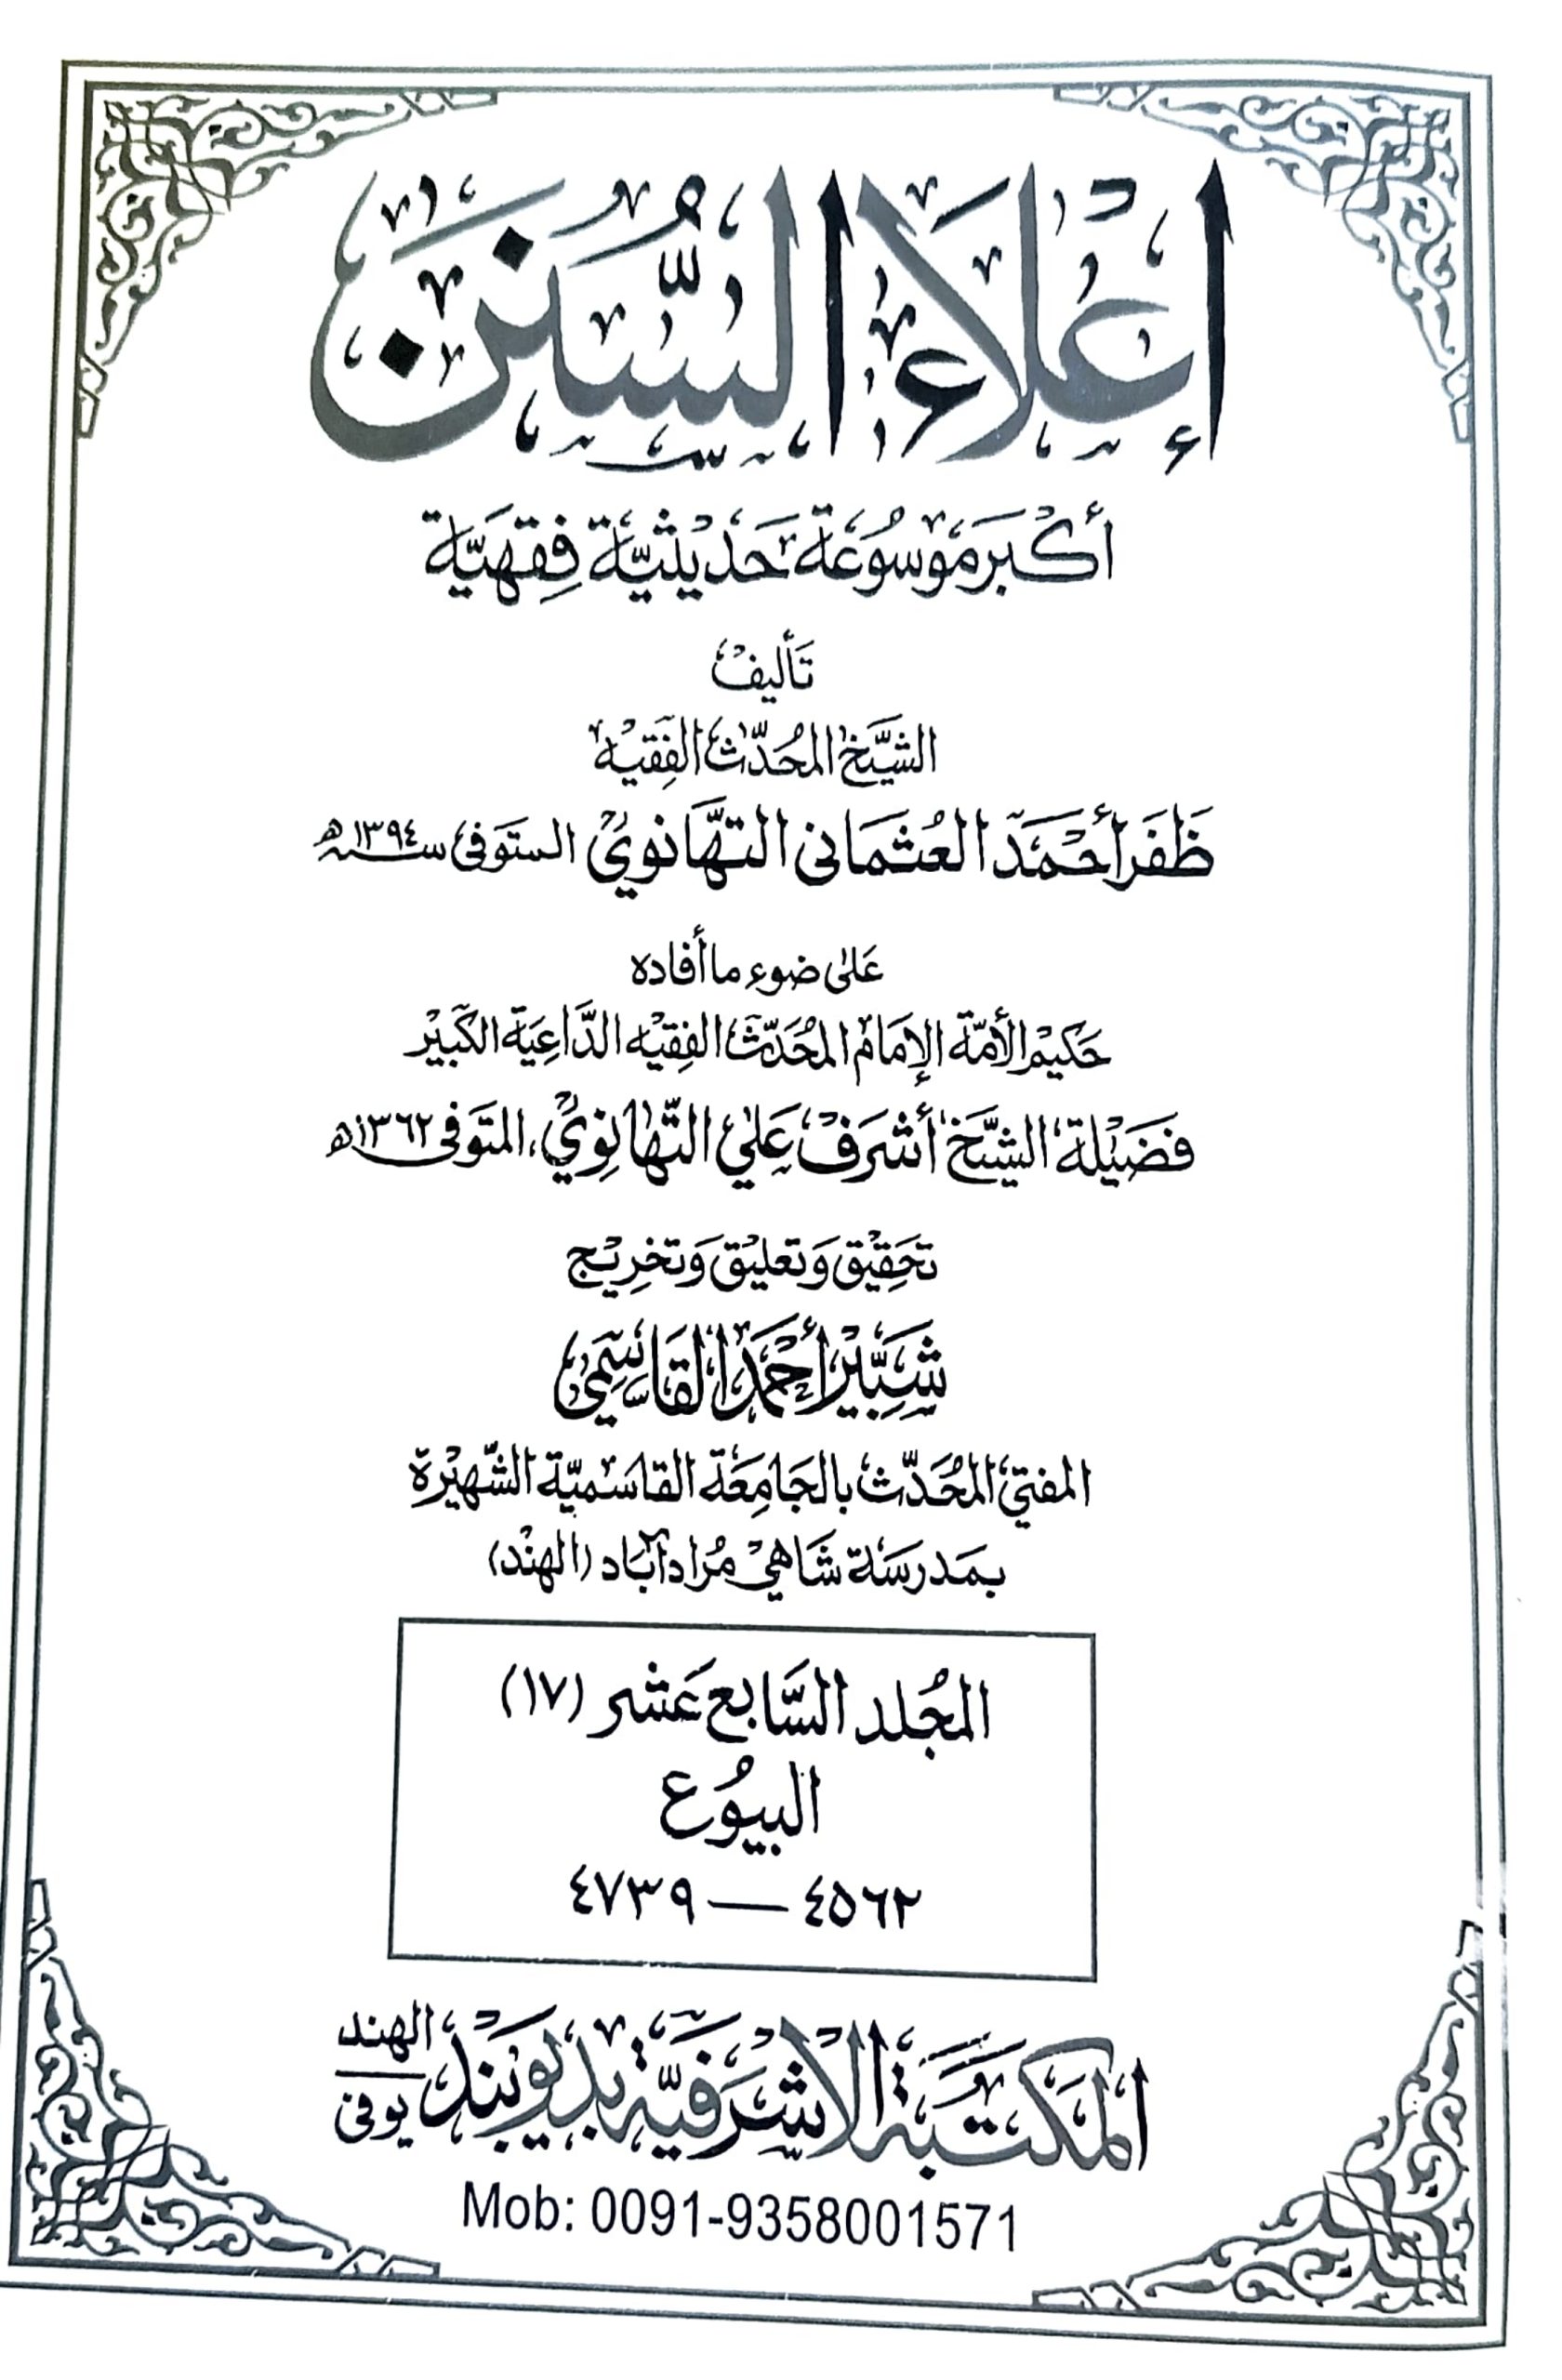 إعلاء السنن
أكبر موسوعة حديثية فقهية
تأليف
الشيخ المحدث الفقيه
ظفر أحمد العثماني التهانوي المتوفى سنة ١٣٩٤ھ
على ضوء ما أفاده
حكيم الأمة الإمام المحدث الفقيه الداعية الكبير
فضيلة الشيخ أشرف علي التهانوي، المتوفى ١٣٦٢ھ
تحقيق وتعليق وتخريج
شبير أحمد القاسمي
المفتي المحدث بالجامعة القاسمية الشهيرة
بمدرسة شاهي مرادآباد (الهند)
المجلد السابع عشر (١٧)
البيوع
٤٥٦٢ — ٤٧٣٩
المكتبة الاشرفية بديوبند الهند
يوفي
Mob: 0091-9358001571